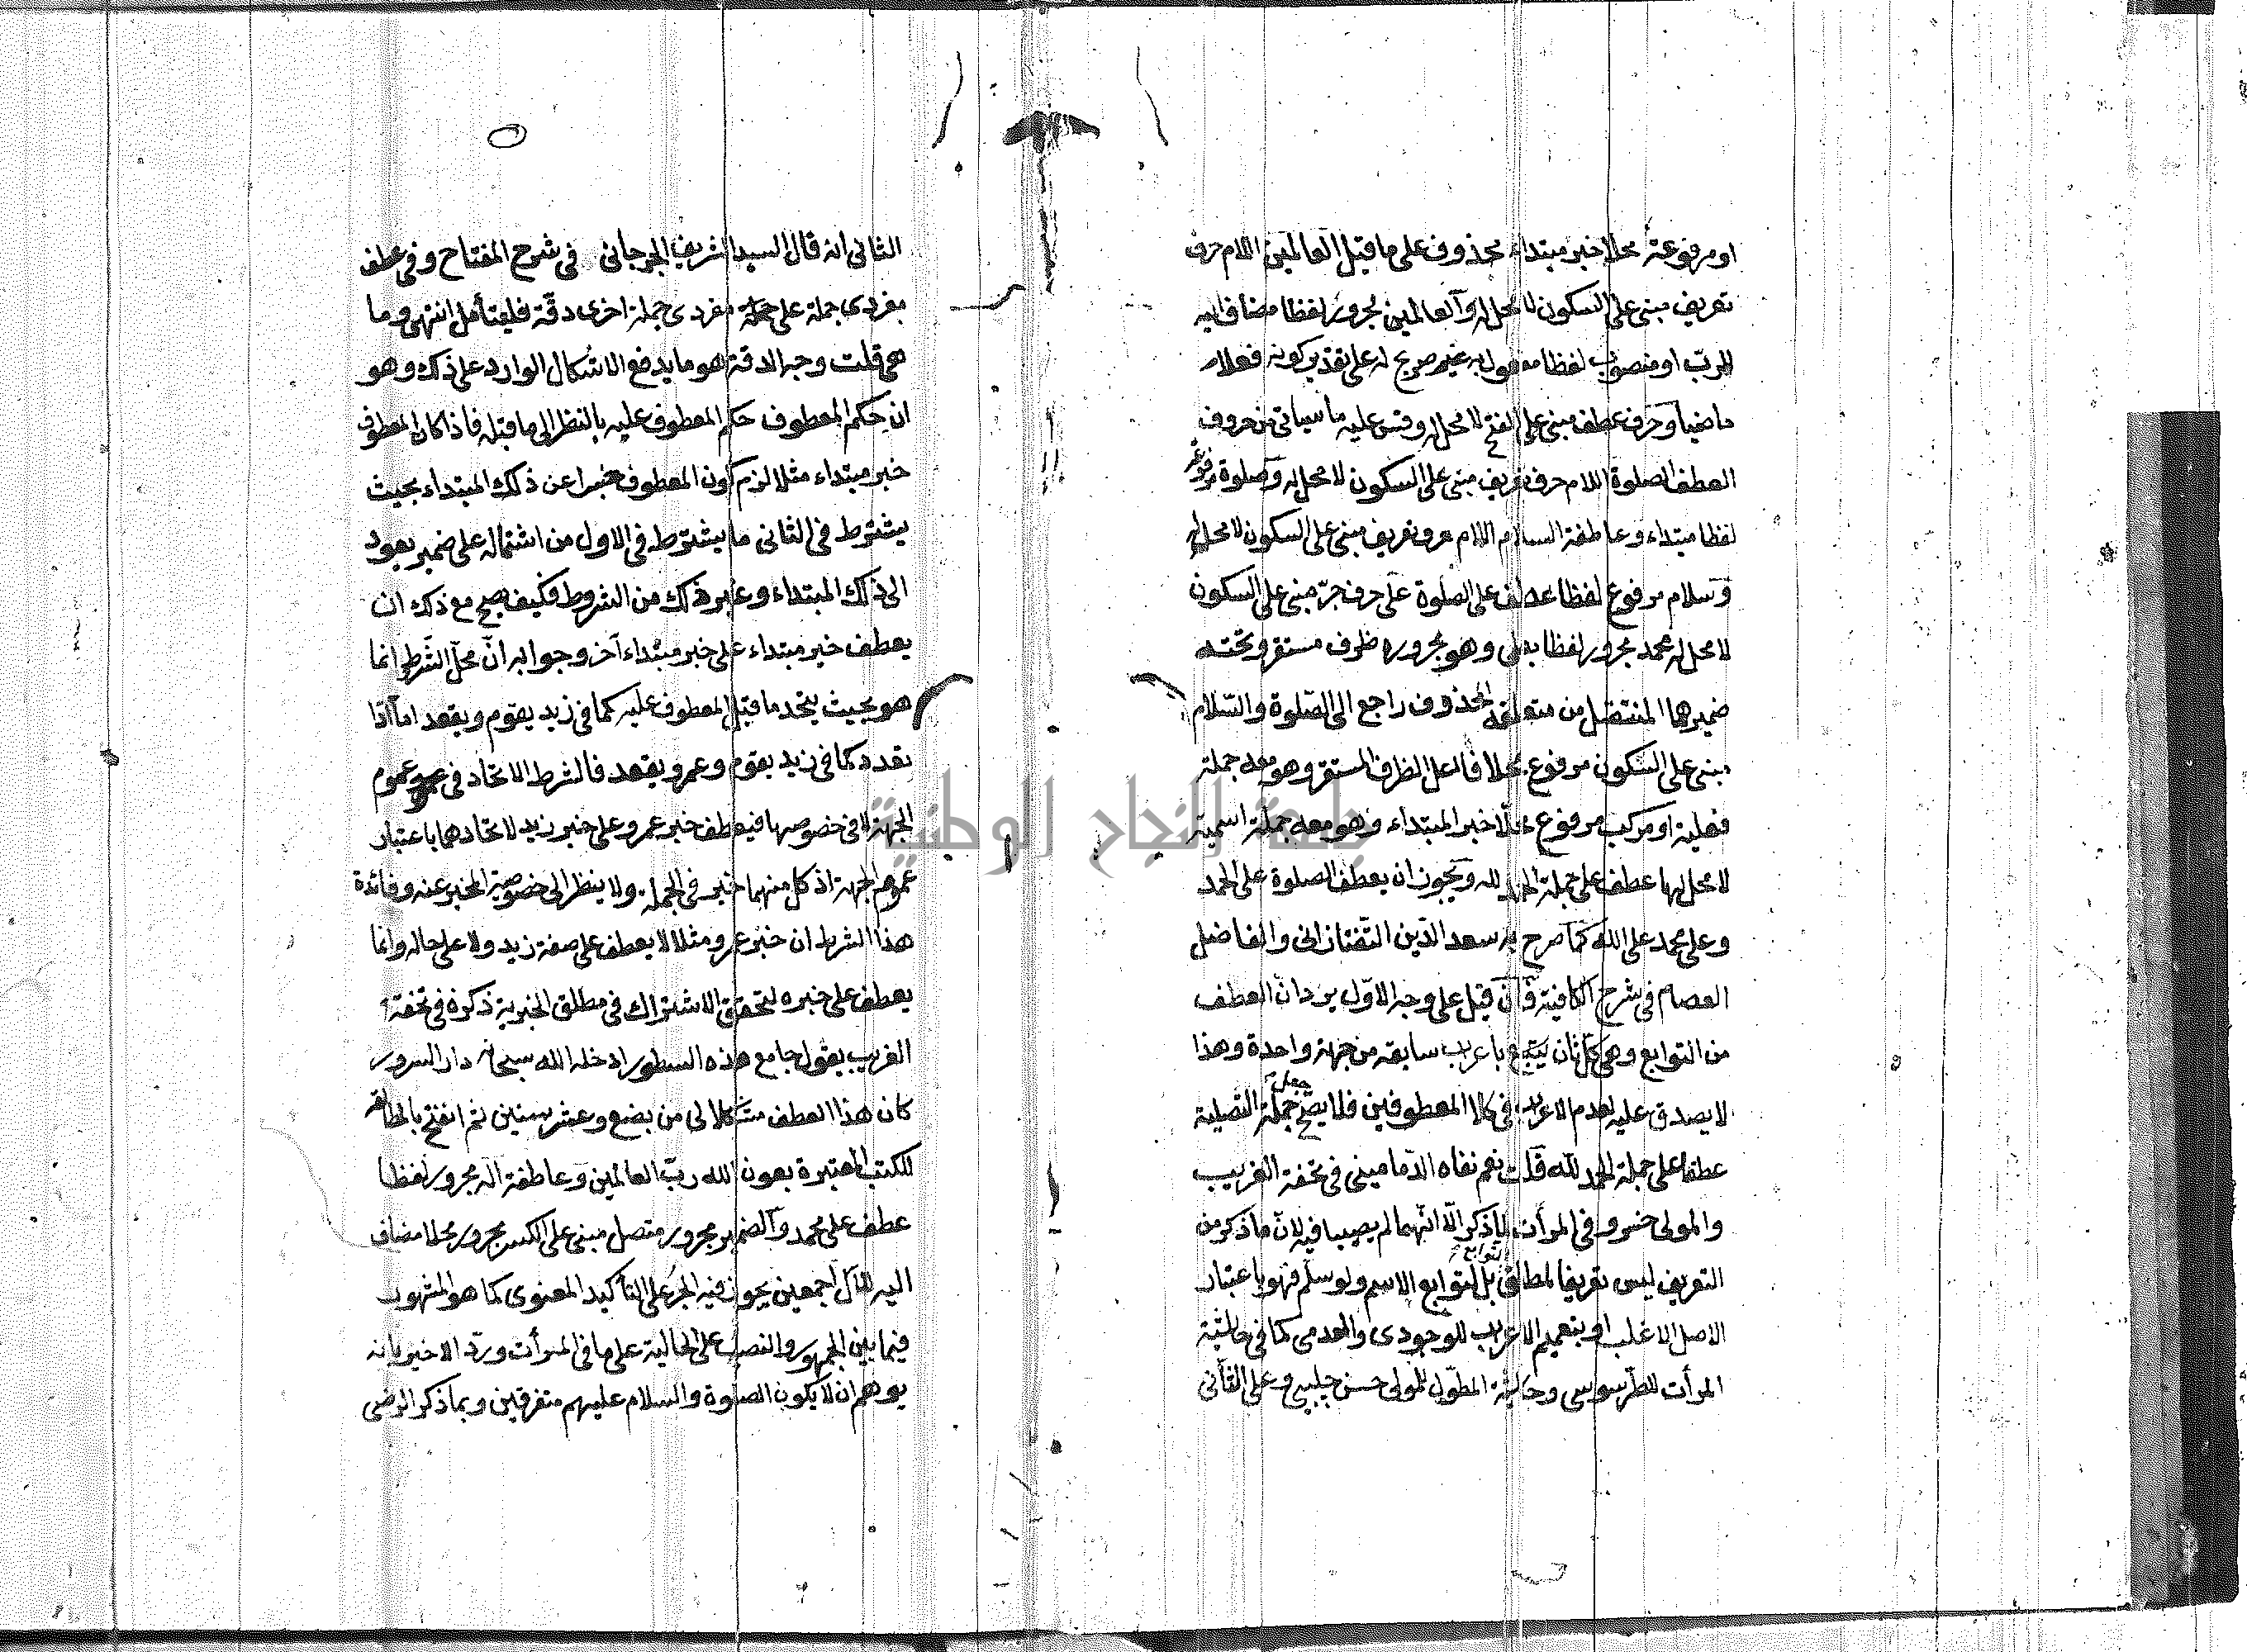 او مرفوعة محلا خبر مبتداء محذوف على ما قيل العالمين اللام حرف
تعريف مبنى على السكون لا محل له وآلعالمين مجرور لفظا مضاف اليه
للرب او منصوب لفظا مفعول به غير صريح له على تقدير كونه فعلا
ماضيا وحرف عطف مبنى على الفتح لا محل له وقس عليه ما سيأتى من حروف
العطف الصلوة اللام حرف تعريف مبنى على السكون لا محل له وصلوة مرفوعة
لفظا مبتداء وعاطفة السلام اللام حرف تعريف مبنى على السكون لا محل له
وسلام مرفوع لفظا عطف على الصلوة على حرف جرّ مبنى على السكون
لا محل له محمد مجرور لفظا بعلى وهو مجروره ظرف مستقر وتحته
ضميرهما المنتقل من متعلقه المحذوف راجع الى الصلوة والسّلام
مبنى على السكون مرفوع محلا فاعل الظرف المستقر وهو معه جملة
فعلية او مركب مرفوع محلّا خبر المبتداء وهو معه جملة اسمية
لا محل لها عطف على جملة الحمد لله ويجوز ان يعطف الصلوة على الحمد
وعلى محمد على الله كما صرح به سعد الدّين التّفتازانى والفاضل
العصام فى شرح الكافية فآن قيل على وجه الاوّل يرد انّ العطف
من التوابع وهى كل ثان يتبع باعراب سابقه من جهة واحدة وهذا
لا يصدق عليه لعدم الاعراب فى كلا المعطوفين فلا يصّح جعل جملة التصلية
عطفا على جملة الحمد لله قلت نعم نفاه الدّمامينى فى تحفة الغريب
والمولى خسرو فى المرأت لما ذكر الّا انّهما لم يصيبا فيه لانّ ما ذكر من
التعريف ليس تعريفا لمطلق التوابع بل لتوابع الاسم ولو سلّم فهو باعتبار
الاصل الاغلب او بتعميم الاعراب للوجودى والعدمى كما فى حاشية
المرأت للطّرسوسى وحاشية المطوّل للمولى حسن چلبى وعلى الثّانى
الثانى انه قال السيد الشريف الجرجانى فى شرح المفتاح وفى عطف
مفردى جملة على جملة مفردى جملة اخرى دقّة فليتأمل انتهى وما
هى قلت وجه الدقة هو ما يدفع الاشكال الوارد على ذلك وهو
ان حكم المعطوف حكم المعطوف عليه بالنظر الى ما قبله فاذا كان المعطوف
خبر مبتداء مثلا لزم كون المعطوف خبرا عن ذلك المبتداء بحيث
يشترط فى الثانى ما يشترط فى الاول من اشتماله على ضمير يعود
الى ذلك المبتداء وغير ذلك من الشروط فكيف يصح مع ذلك ان
يعطف خبر مبتداء على خبر مبتداء آخر وجوابه انّ محلّ الشّرط انما
هو بحيث يتحد ما قبل المعطوف عليه كما فى زيد يقوم ويقعد اما اذا
تعدد كما فى زيد يقوم وعمرو يقعد فالشرط الاتحاد فى عموم
الجهة لا فى خصوصها فيعطف خبر عمرو على خبر زيد لاتحادهما باعتبار
عموم الجهة اذ كل منهما خبر فى الجملة ولا ينظر الى خصوصية المخبر عنه وفائدة
هذا الشرط ان خبر عمرو مثلا لا يعطف على صفة زيد ولا على حاله وانما
يعطف على خبره لتحقق الاشتراك فى مطلق الخبرية ذكره فى تحفة
الغريب يقول جامع هذه السطور ادخله الله سبحانه دار السرور
كان هذا العطف مشكلا لى من بضع وعشر سنين ثم انفتح بالمطالعة
للكتب المعتبرة بعون الله ربّ العالمين وعاطفة اله مجرور لفظا
عطف على محمد وآلضمير مجرور متصل مبنى على الكسر مجرور محلا مضاف
اليه للآل اجمعين يجوز فيه الجرّ على التأكيد المعنوى كما هو المشهور
فيما بين الجمهور والنصب على الحالية على ما فى المرأت وردّ الاخير بانه
يوهم ان لا يكون الصلوة والسلام عليهم متفرقين وبما ذكر الرضى
جامعة النجاح الوطنية